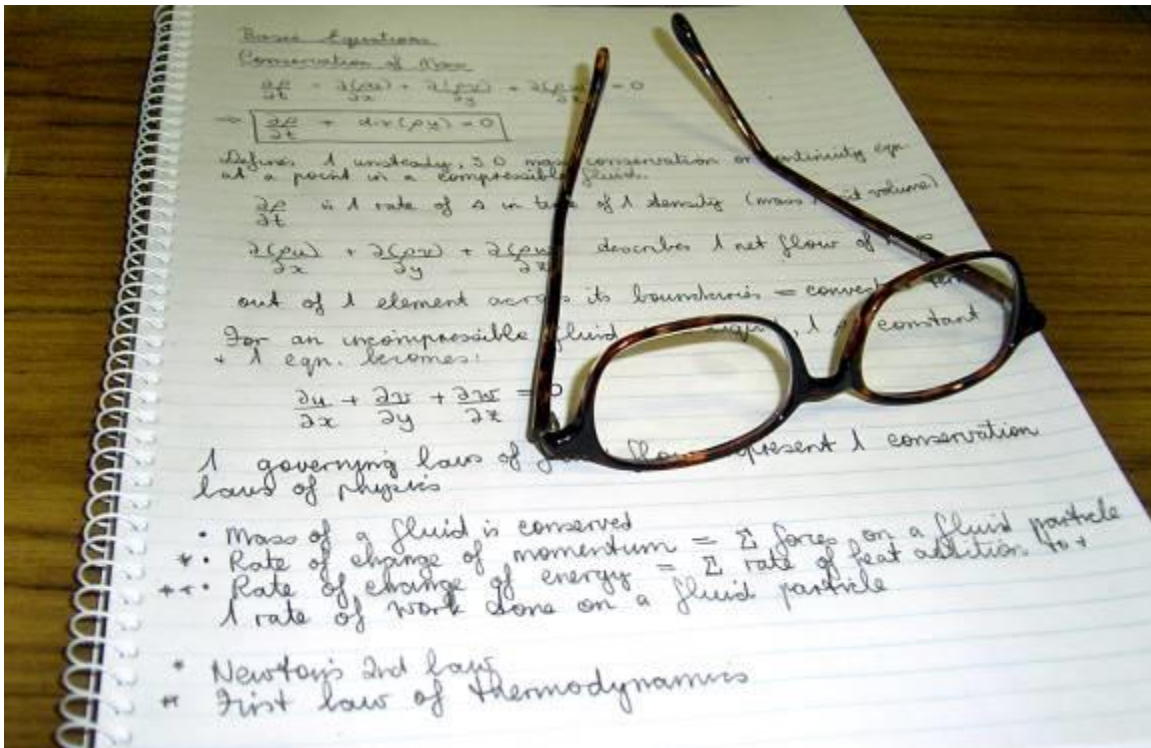 Basic Equations
Conservation of Mass
∂ρ/∂t + ∂(ρu)/∂x + ∂(ρv)/∂y + ∂(ρw)/∂z = 0
⇒ ∂ρ/∂t + div(ρu) = 0
Defines 1 unsteady, 3D mass conservation or continuity eqn.
at a point in a compressible fluid.
∂ρ/∂t is 1 rate of Δ in of 1 density (mass volume)
∂(ρu)/∂x + ∂(ρv)/∂y + ∂(ρw)/∂z describes 1 net flow of
out of 1 element across its boundaries =
For an incompressible fluid 1 constant
+ 1 eqn. becomes:
∂u/∂x + ∂v/∂y + ∂w/∂z = 0
1 governing laws of 1 conservation
laws of physics
• Mass of a fluid is conserved
*• Rate of change of momentum = Σ forces on a fluid particle
**• Rate of change of energy = Σ rate of heat addition to +
1 rate of work done on a fluid particle
* Newton's 2nd law
** First law of thermodynamics